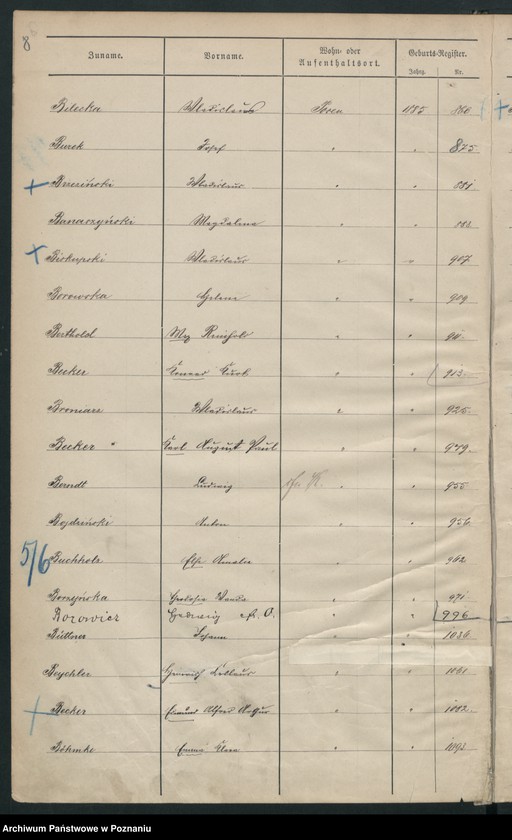 8
Zuname. Vorname. Wohn- oder Aufenthaltsort. Geburts-Register.
Jahrg. Nr.
Bilecka Wladislaus Posen 1885 860
Burek Josef " " 875
Brzeziński Wladislaus " " 881
Banaszyński Magdalena " " 882
Biskupski Wladislaus " " 907
Borowska Helene " " 909
Berthold Max Reinhold " " 911
Becker Konrad Kurt " " 913
Wladislaus " " 925
Becker Karl August Paul " " 949
Berndt Ludwig " 955
Bojdziński Anton " " 956
5/6 Buchholz Else Amalie " " 962
Borzyńska Wanda " " 971
Borowicz Hedwig " " 996
Büttner Johann " " 1036
Beychler " " 1061
Becker Alfred Arthur " " 1082
Böhmke Emma Klara " " 1093
Archiwum Państwowe w Poznaniu